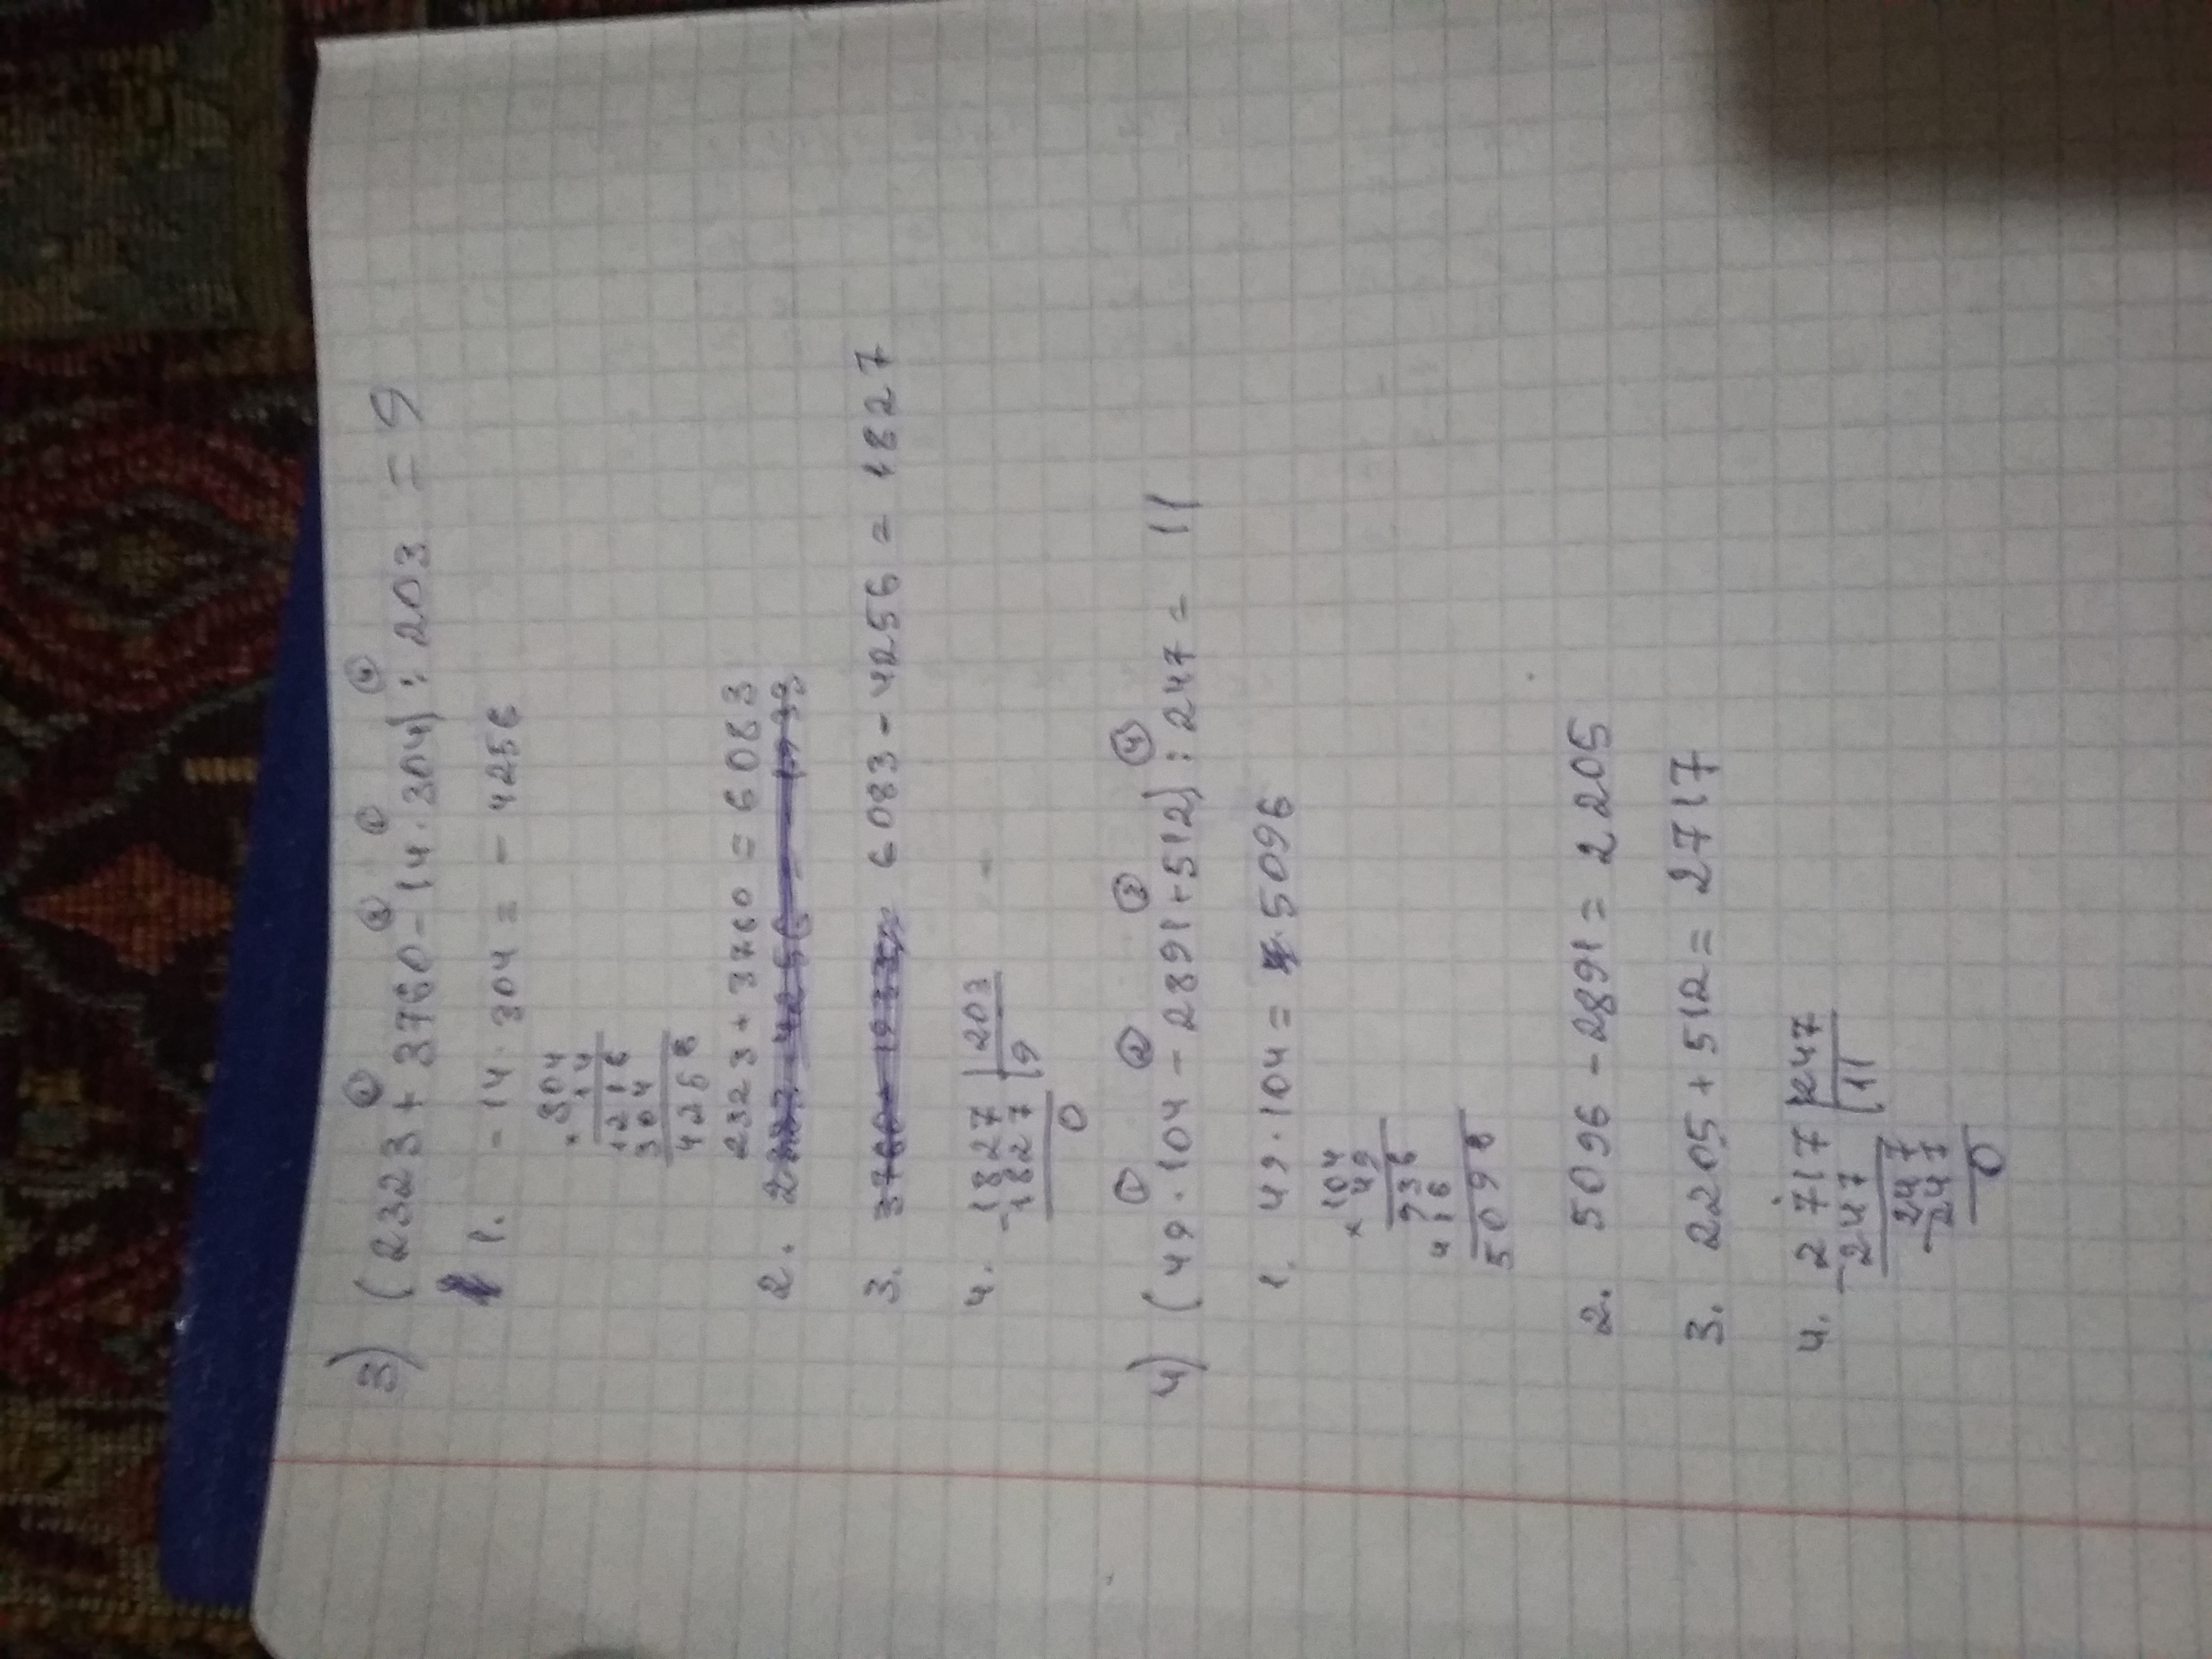 3) (2323 + 3760 - 14 · 304) : 203 = 9
1. - 14 · 304 = - 4256
× 304
14
1216
304
4256
2323 + 3760 = 6083
2.
3. 6083 - 4256 = 1827
4. 1827 | 203
- 1827 | 9
0
4) (49 · 104 - 2891 + 512) : 247 = 11
1. 49 · 104 = 5096
× 104
49
936
416
5096
2. 5096 - 2891 = 2205
3. 2205 + 512 = 2717
4. 2717 | 247
- 247 | 11
247
- 247
0